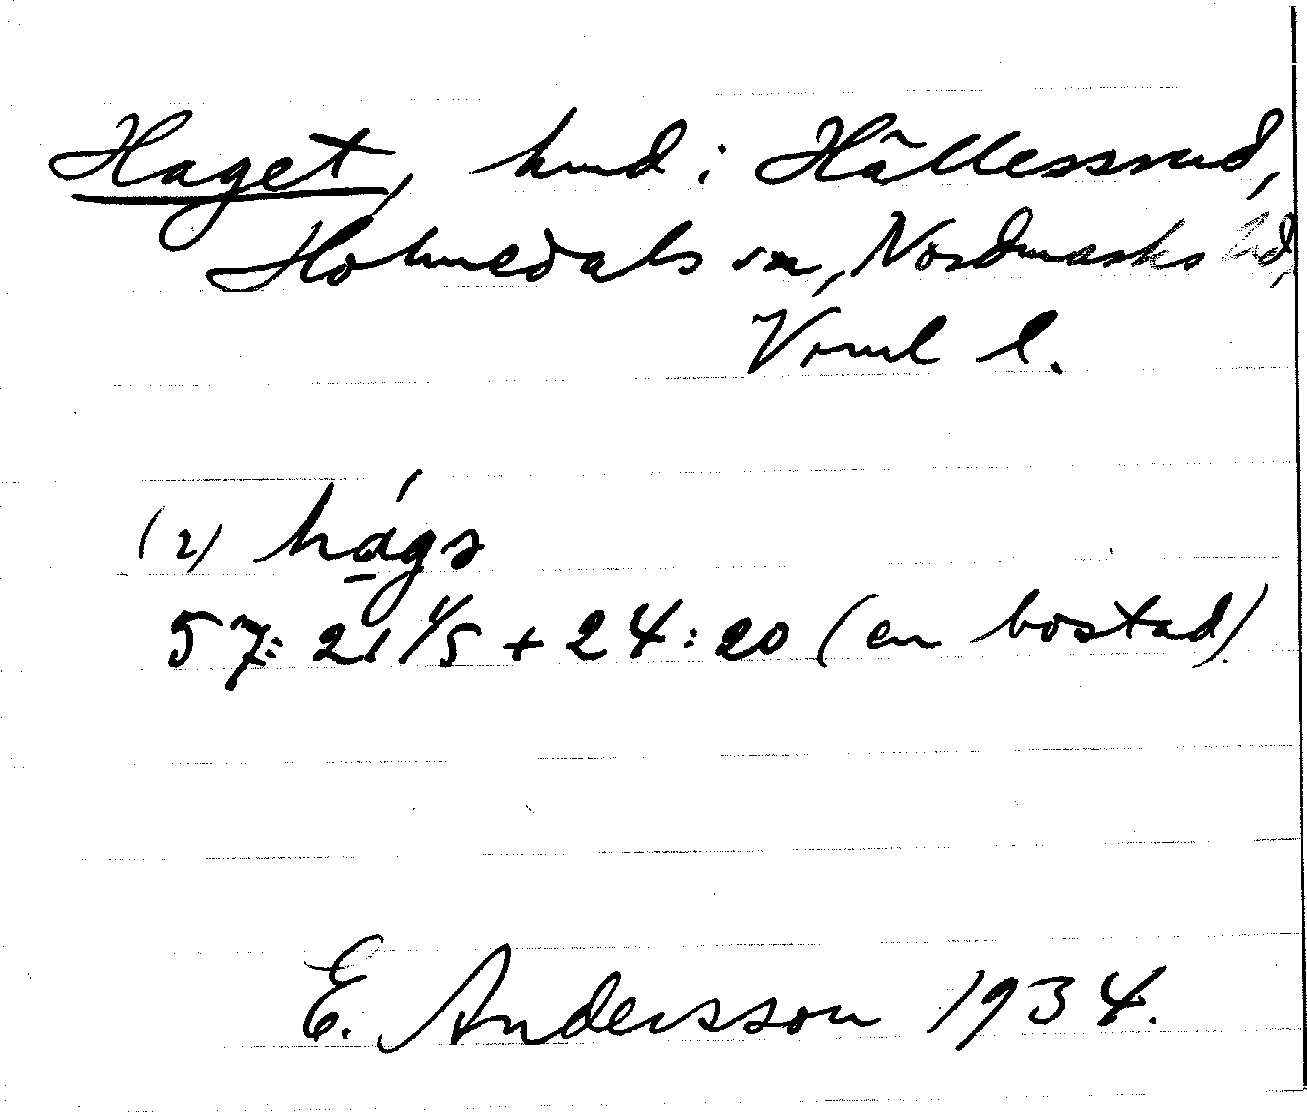 Haget, hmd i Hällessrud,
Holmedals sn, Nordmarks hd,
Vrml l.
(2) há̱gə
57: 21 1/5 + 24:20 (en bostad)
E. Andersson 1934.